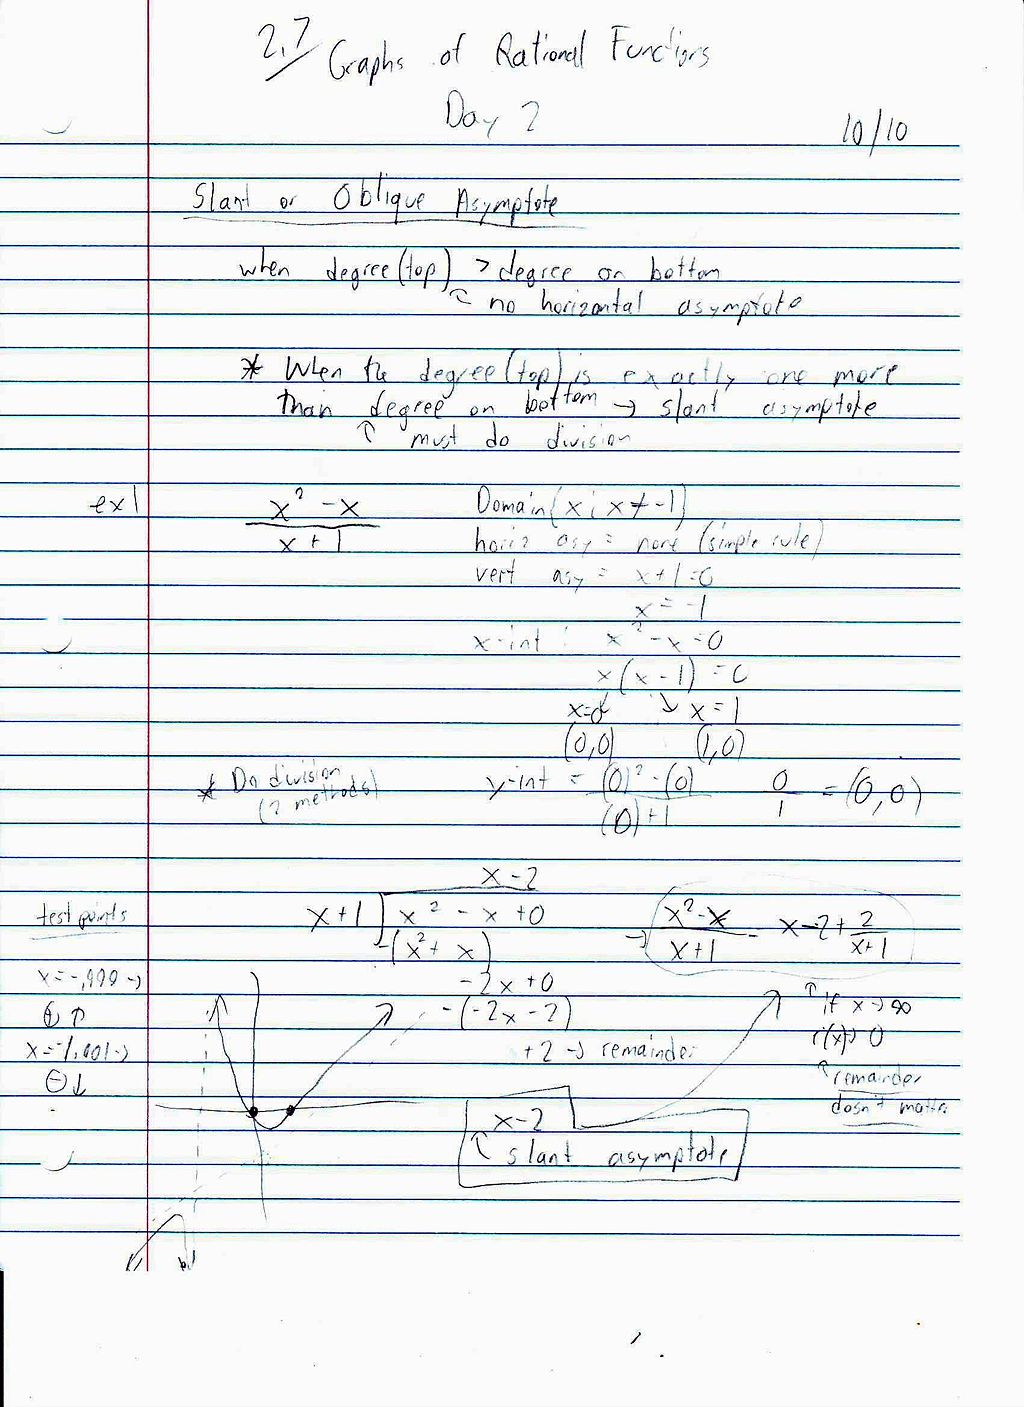 2.7 Graphs of Rational Functions
Day 2
10/10
Slant or Oblique Asymptote
when degree(top) > degree on bottom
↑ no horizontal asymptote
* When the degree(top) is exactly one more
than degree on bottom → slant asymptote
↑ must do division
ex1
x² - x
x + 1
Domain{x: x ≠ -1}
horiz asy = none (simple rule)
vert asy = x+1=0
x = -1
x-int: x² - x = 0
x(x - 1) = 0
x=0 ↘ x = 1
(0,0) (1,0)
* Do division
(2 methods)
y-int = (0)² - (0)
(0)+1
0
1
= (0,0)
x - 2
x+1 x² - x + 0
-(x² + x)
-2x + 0
-(-2x - 2)
+2 → remainder
x² - x
x + 1
= x - 2 + 2
x+1
↑ if x → ∞
r(x) → 0
↑ remainder
dosn't matter
test points
x = -.999 →
⊕ ↑
x = -1.001 →
⊖ ↓
x - 2
↑ slant asymptote